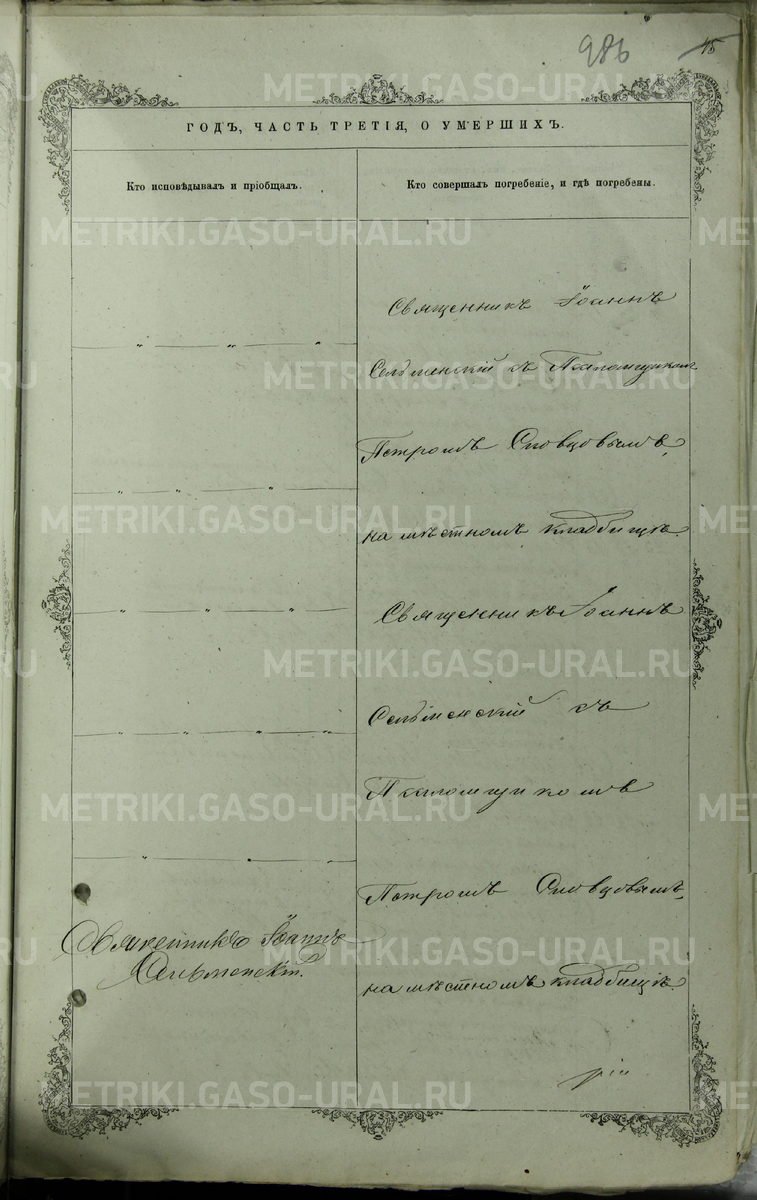 986 15
ГОДЪ, ЧАСТЬ ТРЕТІЯ, О УМЕРШИХЪ.
Кто исповѣдывалъ и пріобщалъ.
Кто совершалъ погребеніе, и гдѣ погребены.
Священникъ Іоаннъ
Сельменскій съ Псаломщикомъ
Петромъ Словцовымъ,
на мѣстномъ кладбищѣ.
Священникъ Іоаннъ
Сельменскій съ
Псаломщикомъ
Петромъ Словцовымъ,
на мѣстномъ кладбищѣ.
Священникъ Іоаннъ
Сельменскій.
METRIKI.GASO-URAL.RU